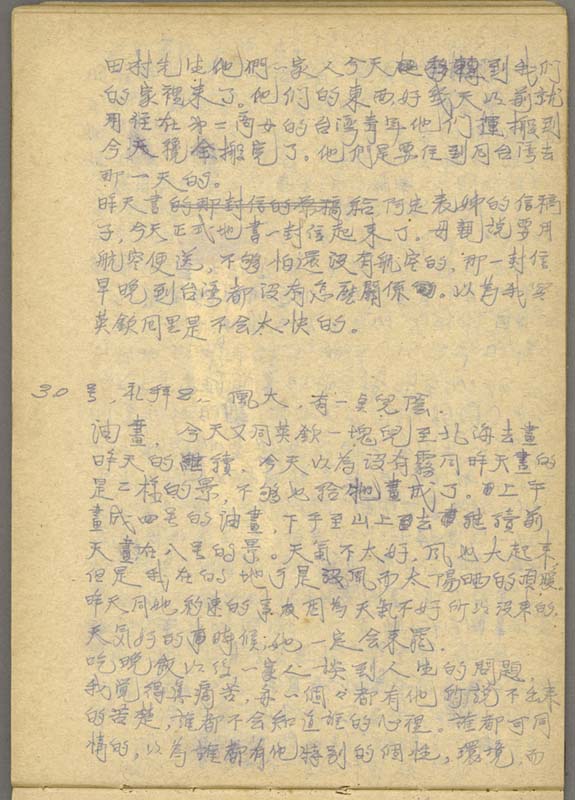 田村先生他們一家人今天移轉到我们
的家裡来了。他们的東西好幾天以前就
用住在第二兩女的台湾青年他们搬到
今天纔全搬完了。他们是要住到回台湾去
那一天的。
昨天書的那封信的原稿給阿定表姊的信稿
子,今天正式地書一封信起来了。母親說要用
航空便送,不够怕還没有航空的,那一封信
早晚到台湾都没有怎麽關係。以為我
英欽同里是不会太快的。
30号,礼拜二、風大,有一点兒陰.
油畫,今天又同英欽一塊兒至北海去畫
昨天的繼續,今天以為没有霧同昨天畫的
是二樣的景,不够也給他畫成了。上午
畫成四号的油畫,下午至山上去繼續前
天畫在八号的景。天氣不太好,風也大起来
但是我在的地方是没風而太陽晒的頂暖。
昨天同她約束的 因為天氣不好所以没来的.
天気好的時候她一定会来罷.
吃晚飯以後一家人談到人生的問題,
我覚得真痛苦,每一個人都有他的說不出来
的苦楚,誰都不会知道誰的心裡。誰都可同
情的,以為誰都有他特別的個性,環境,而